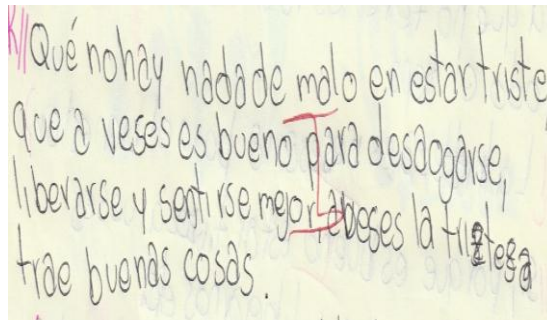 R// Qué no hay nada de malo en estar triste
que a veses es bueno para desaogarse,
liberarse y sentirse mejor, abeses la tristeza
trae buenas cosas.